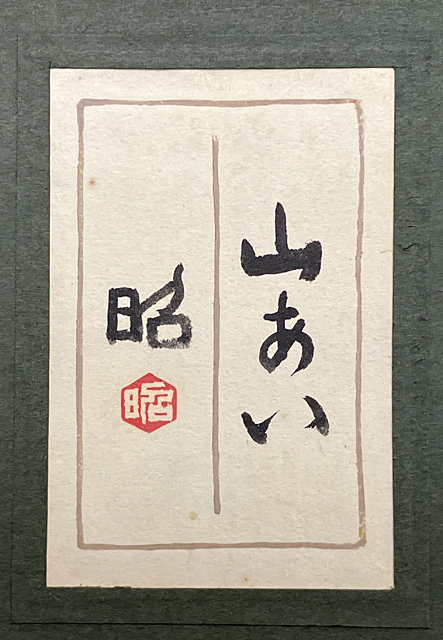 山あい
昭
昭